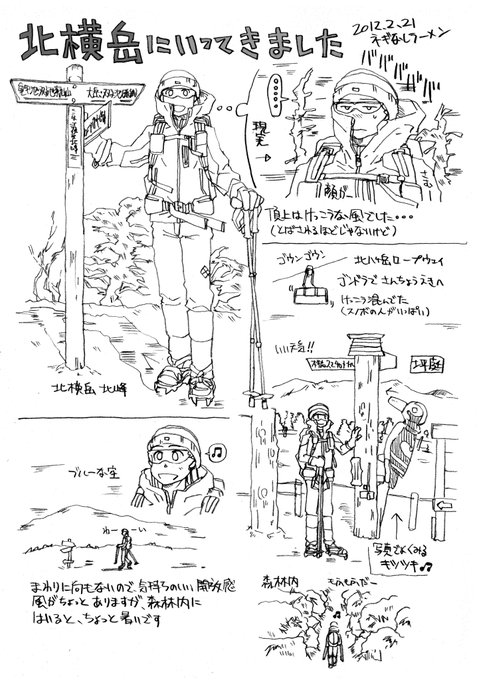 北横岳にいってきました
2012.2.21
ネギなしラーメン
北横岳 北峰
現実
→
さむ
頂上はけっこうな風でした・・・
(とばされるほどじゃないけど)
ゴウンゴウン
北八ヶ岳ロープウェイ
ゴンドラでさんちょうえきへ
けっこう混んでた
(スノボの人がいっぱい)
いい天気!!
坪庭
写真でよくみる
キツツキ♪
ブルーな空
♪
わーい
まわりに何もないので、気持ちのいい開放感
風がちょっとありますが、森林内に
はいると、ちょっと暑いです
森林内
♪